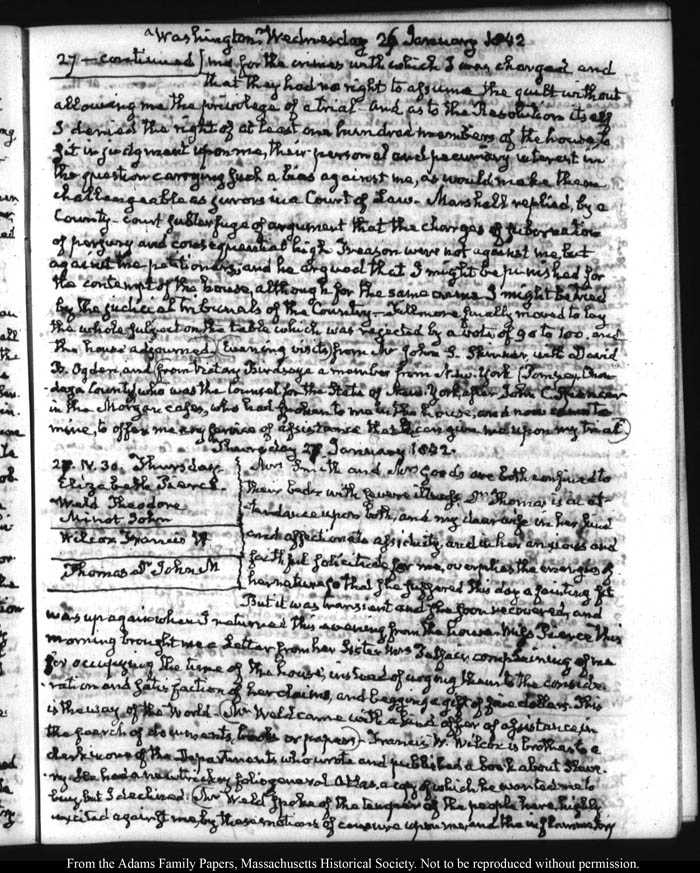 Washington, Wednesday 26 January 1842
27 — continued] me for the crimes with which I was charged and
that they had no right to assume the guilt without
allowing me the privilege of a trial. And as to the Resolution itself
I denied the right of at least one hundred members of the house, to
sit in judgment upon me, their personal and pecuniary interest in
the question carrying such a bias against me, as would make them
challengeable as jurors in a Court of Law. Marshall replied, by a
County-court subterfuge of argument that the charges of subornation
of perjury and consequential high Treason were not against me, but
against the petitioners, and he argued that I might be punished for
the contempt of the house, although for the same crime I might be tried
by the judicial tribunals of the Country. Fillmore finally moved to lay
the whole subject on the table which was rejected by a vote of 90 to 100, and
the house adjourned. (Evening visits) from Mr John S. Skinner, with David
B. Ogden, and from Victory Birdseye a member from New-York (Pompey, Onon-
daga County) who was the counsel for the State of New York after John C. Spencer
in the Morgan cases, who had spoken to me in the house, and now came to
mine, to offer me any service of assistance that he can give me upon my trial)
Thursday 27 January 1842.
27. IV. 30. Thursday
Elizabeth Pierce
Weld Theodore
Minot John
Wilcox Francis W
Thomas Dr John M
Mrs Smith and Mrs are both confined to
their beds with severe illness, Dr Thomas is in at-
tendance upon both, and my dear wife in her kind
and affectionate assiduity, and in her anxious and
faithful solicitude for me, overplies the energies of
her nature so that she suffered this day a fainting fit
But it was transient and she soon recovered, and
was up again when I returned this evening from the house. Miss Pierce this
morning brought me a Letter from her Sister Mrs complaining of me
for occupying the time of the house, instead of urging them to the conside-
ration and satisfaction of her claims, and begging a gift of five dollars. This
is the way of the World. (Mr Weld came with a kind offer of assistance in
the search of documents, books or papers) — Francis W. Wilcox is brother to a
clerk in one of the Departments who wrote and published a book about Slave-
ry. He had a new folio general Atlas, a copy of which he wanted me to
buy, but I declined. (Mr Weld spoke of the temper of the people here, highly
excited against me by these motions of censure upon me, and the inflammatory
From the Adams Family Papers, Massachusetts Historical Society. Not to be reproduced without permission.